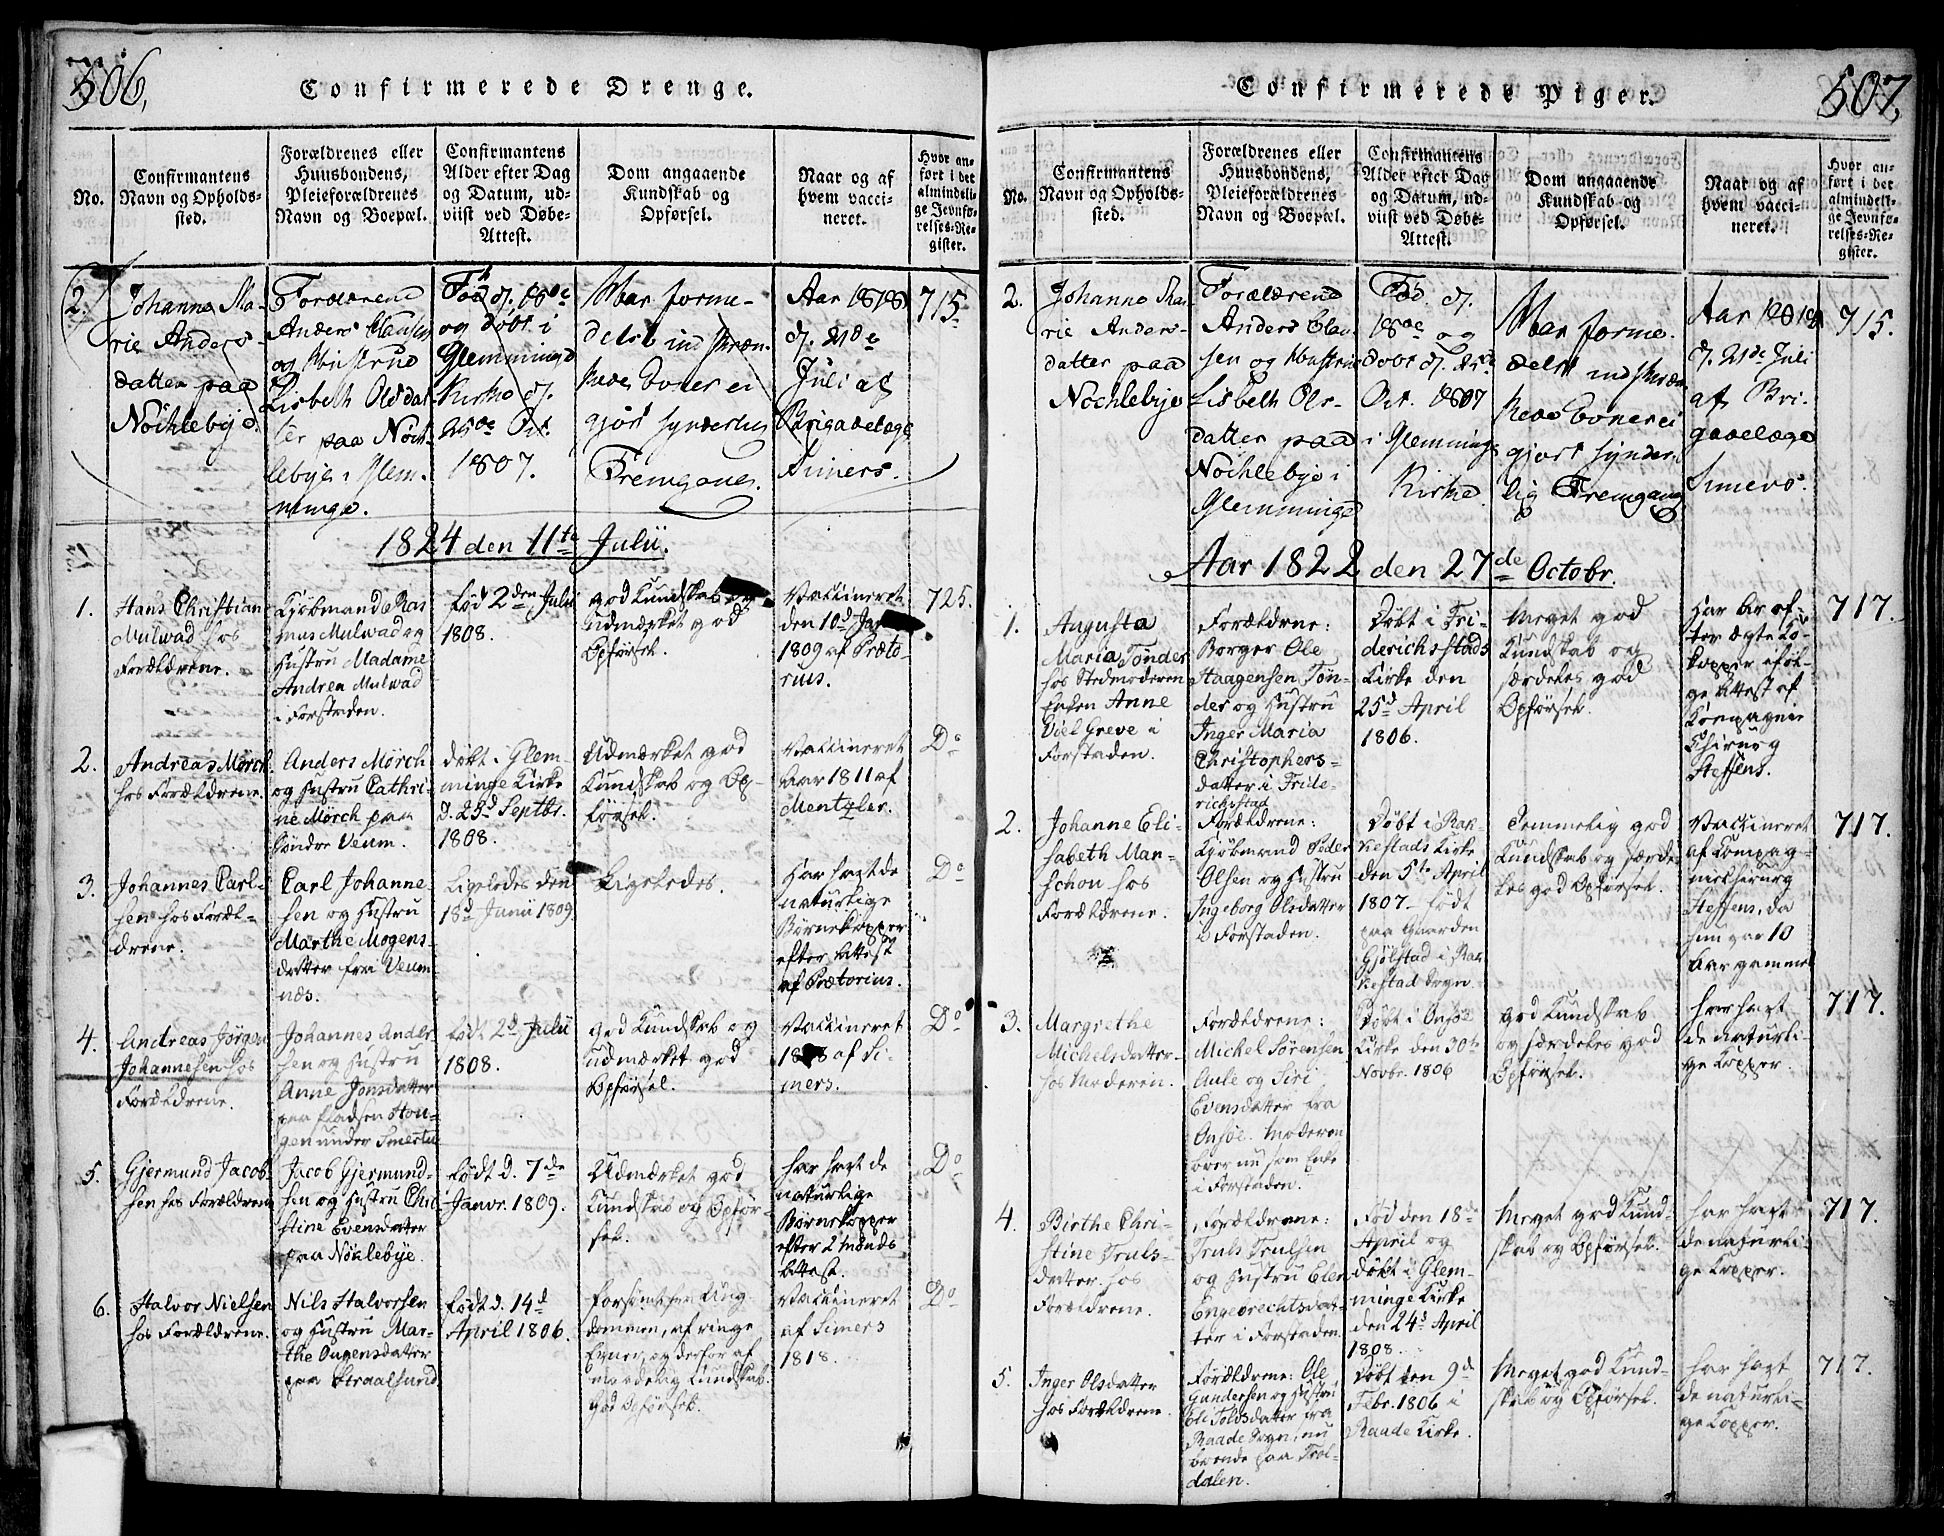 506,
Confirmerede Drenge.
No.
Confirmantens
Navn og Opholds-
sted.
Forældrenes eller
Huusbondens,
Pleieforældrenes
Navn og Boepæl.
Confirmantens
Alder efter Dag
og Datum, ud-
viist ved Døbe-
Attest.
Dom angaaende
Kundskab og
Opførsel.
Naar og af
hvem vacci-
neret.
Hvor an-
ført i det
almindeli-
ge Jevnfø-
relses-Re-
gister.
2.
Johanne Ma-
rie Anders-
datter paa
Nöchlebye.
Forældrene
Anders Clausen
og Hustrue
Lisbeth Olsdat-
ter paa Nöch-
lebye i Glem-
minge.
Fød d. 18de
og døbt i
Glemminge
Kirke d.
25de Oct.
1807.
Har forme-
delst indskræn-
kede Evner ei
gjort synderlig
Fremgang.
Aar 1818
d. 21de
Juli af
Brigadelæge
Simers.
715.
1824 den 11te Julii.
1.
Hans Christian
Mulwad hos
Forældrene.
Kjöbmand Ras
mus Mulwad og
Hustru Madame
Andrea Mulwad
i Forstaden.
født 2den Julii
1808.
god Kundskab og
udmærket god
Opførsel.
Vaccineret
den 10d Jan
1809 af Præto-
rius.
725.
2.
Andreas Mørch
hos Forældrene.
Anders Mörch
og Hustru Cathri-
ne Mörch paa
Söndre Veum.
døbt i Glem-
minge Kirke
d. 25d Septbr.
1808.
Udmærket god
Kundskab og Op-
førsel.
Vaccineret
Aar 1811 af
Mentzler.
Do
3.
Johannes Carl-
sen hos Foræl-
drene.
Carl Johanne-
sen og Hustru
Marthe Mogens-
datter fra Veum-
næs.
Ligeledes den
18d Junii 1809.
Ligeledes.
Har havt de
naturlige
Børnekopper
efter Attest
af Prætorius.
Do
4.
Andreas Jörgen
Johannesen hos
Forældrene.
Johannes Ander
sen og Hustru
Anne Jonsdatter
paa Pladsen Hou-
gen under Smertu
født 2d Julii
1808.
god Kundskab og
udmærket god
Opførsel.
Vaccineret
af Si-
mers.
Do
5.
Gjermund Jacob-
sen hos Forældrene
Jacob Gjermund-
sen og Hustru Chri-
stine Evensdatter
paa Nöklebye.
født d. 7de
Janvr. 1809.
Udmærket god
Kundskab og Opför-
sel.
har havt de
naturlige
Börnekopper
efter 2 Mænds
Attest.
Do
6.
Halvor Nielsen
hos Forældrene.
Nils Halvorsen
og Hustru Mar-
the Ougensdatter
paa Straalsund.
født d. 14d
April 1806.
forsömt sin Ung-
dommen, af ringe
Evner, og derfor af
maadelig Kundskab.
God Opførsel.
Vaccineret
af Simers
1818.
Do
507,
Confirmerede Piger.
No.
Confirmantens
Navn og Opholds-
sted.
Forældrenes eller
Huusbondens,
Pleieforældrenes
Navn og Boepæl.
Confirmantens
Alder efter Dag
og Datum, ud-
viist ved Døbe-
Attest.
Dom angaaende
Kundskab og
Opførsel.
Naar og af
hvem vacci-
neret.
Hvor an-
ført i det
almindeli-
ge Jevnfø-
relses-Re-
gister.
2.
Johanne Ma-
rie Anders-
datter paa
Nöchlebye
Forældrene
Anders Clau-
sen og Hustrue
Lisbeth Ols-
datter paa
Nöchlebye i
Glemminge
Fød. d.
18de og
döbt d. 25de
Oct. 1807
i Glemminge
Kirke
Har forme-
delst indskræn-
kede Evner ei
gjort synder-
lig Fremgang
Aar 1818
d. 21de Juli
af Bri-
gadelæge
Simers.
715.
Aar 1822 den 27de Octobr.
1.
Augusta
Maria Tönder
hos Stedmoderen
Enken Anne
Viel Greve i
Forstaden.
Forældrene:
Borger Ole
Haagensen Tön-
der og Hustru
Inger Maria
Christophers-
datter i Fride-
richsstad
Döbt i Fri-
derichsstads
Kirke den
25d April
1806.
Meget god
Kundskab og
særdeles god
Opførsel.
Har Ar af-
ter ægte Ko-
kopper iföl-
ge Attest af
Compagnie
Chirurg
Steffens.
717.
2.
Johanne Eli-
sabeth Man-
schon hos
Forældrene.
Forældrene:
Kjöbmand Peder
Olsen og Hustru
Ingeborg Olsdatter
i Forstaden.
Döbt i Rak-
kestads Kirke
den 5te April
1807 - født
paa Gaarden
Gjölstad i Rak
kestad Sogn.
Temmelig god
Kundskab og særde
les god Opførsel.
Vaccineret
af Compag-
niechirurg
Steffens, da
hun var 10
Aar gammel
717.
3.
Margrethe
Michelsdatter
hos Moderen.
Forældrene:
Michel Sörensen
Aule og Siri
Evensdatter fra
Onsöe. Moderen
boer nu som Enke
i Forstaden.
Döbt i Onsöe
Kirke den 30te
Novbr. 1806
god Kundskab
og særdeles god
Opførsel.
har havt
de naturli-
ge Kopper.
717.
4.
Birthe Chri-
stine Truls-
datter hos
Forældrene.
Forældrene:
Truls Trulsen
og Hustru Elen
Engebrechtsdat-
ter i Forstaden
Fød den 18de
April og
döbt i Glem-
minge Kirke
den 24d April
1808.
Meget god Kund-
skab og Opførsel.
har havt
de naturli-
ge Kopper.
717.
5.
Inger Olsdatter
hos Forældrene.
Forældrene: Ole
Gundersen og Hustru
Eli Toldsdatter fra
Raade Sogn, nu
boende paa Trol-
dalen.
Döbt den 9d
Febr. 1806 i
Raade Kirke.
Meget god Kund-
skab og Opførsel.
har havt
de naturli-
ge Kopper.
717.